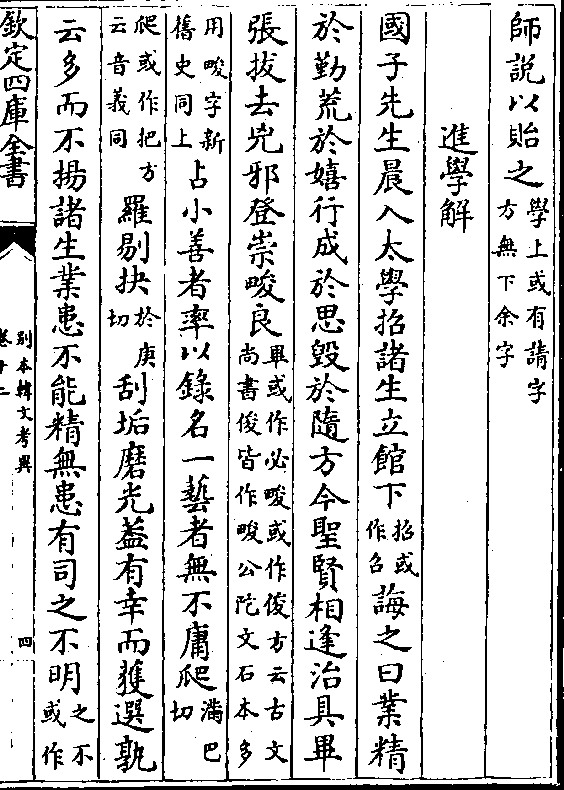 師說以貽之學上或有請字方無下余字
進學解
國子先生晨入太學招諸生立館下招或作召誨之曰業精
於勤荒於嬉行成於思毀於隨方今聖賢相逢治具畢
張拔去兇邪登崇畯良畢或作必畯或作俊方云古文尚書俊皆作畯公阡文石本多
用畯字新舊史同上占小善者率以錄名一藝者無不庸爬蒲巴切
爬或作把方云音義同羅剔抉於庚切刮垢磨光蓋有幸而獲選孰
云多而不揚諸生業患不能精無患有司之不明之不或作
欽定四庫全書
別本韓文考異
卷十二
四